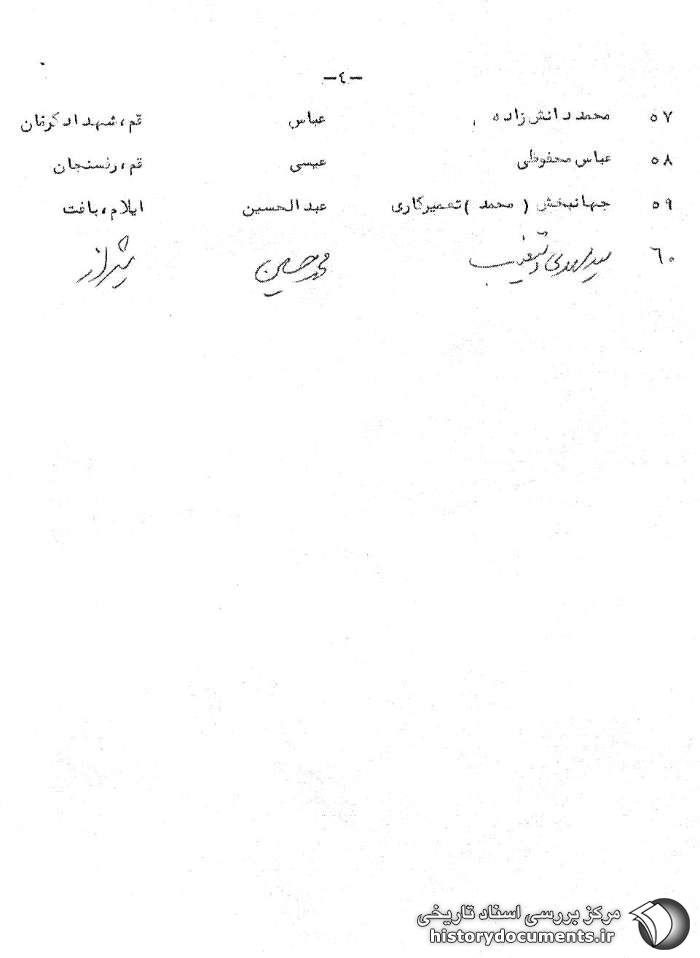 -٤-
٥٧ محمد دانش زاده عباس قم، شهداد کرمان
٥٨ عباس محفوظی عیسی قم، رفسنجان
٥٩ جهانبخش ( محمد ) تعمیرکاری عبدالحسین ایلام، بافت
٦٠ محمدحسین شیراز
مرکز بررسی اسناد تاریخی
historydocuments.ir